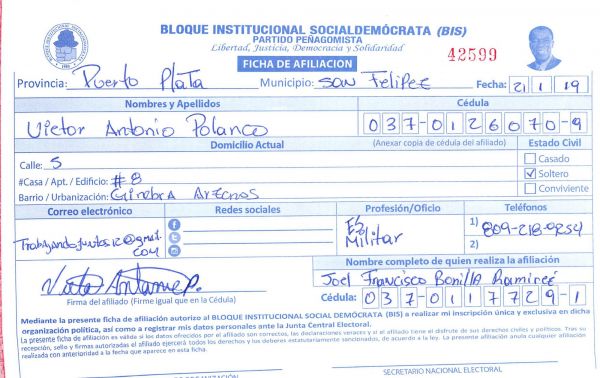 BLOQUE INSTITUCIONAL SOCIALDEMÓCRATA (BIS)
PARTIDO PEÑAGOMISTA
Libertad, Justicia, Democracia y Solidaridad
FICHA DE AFILIACION
42599
Provincia: Puerto Plata Municipio: San Felipe Fecha: 21 1 19
Nombres y Apellidos Cédula
Victor Antonio Polanco 037-0126070-9
Domicilio Actual (Anexar copia de cédula del afiliado) Estado Civil
Calle: 5
Casado
#Casa / Apt. / Edificio: #8
✓ Soltero
Barrio / Urbanización: Ginebra Arenas
Conviviente
Correo electrónico Redes sociales Profesión/Oficio Teléfonos
Trabajandojuntos12@gmail.com
Es Militar
1) 809-218-0254
2)
Nombre completo de quien realiza la afiliación
Joel Francisco Bonilla Ramirez
Firma del afiliado (Firme igual que en la Cédula)
Cédula: 037-0117729-1
Mediante la presente ficha de afiliación autorizo al BLOQUE INSTITUCIONAL SOCIAL DEMÓCRATA (BIS) a realizar mi inscripción única y exclusiva en dicha
organización política, así como a registrar mis datos personales ante la Junta Central Electoral.
La presente ficha de afiliación es válida si los datos ofrecidos por el afiliado son correctos, las declaraciones veraces y si el afiliado tiene el disfrute de sus derechos civiles y políticos. Tras su
recepción, sello y firmas autorizadas el afiliado ejercerá todos los derechos y los deberes estatutariamente sancionados, de acuerdo a la ley. La presente afiliación anula cualquier afiliación
realizada con anterioridad a la fecha que aparece en esta ficha.
SECRETARIO NACIONAL ELECTORAL